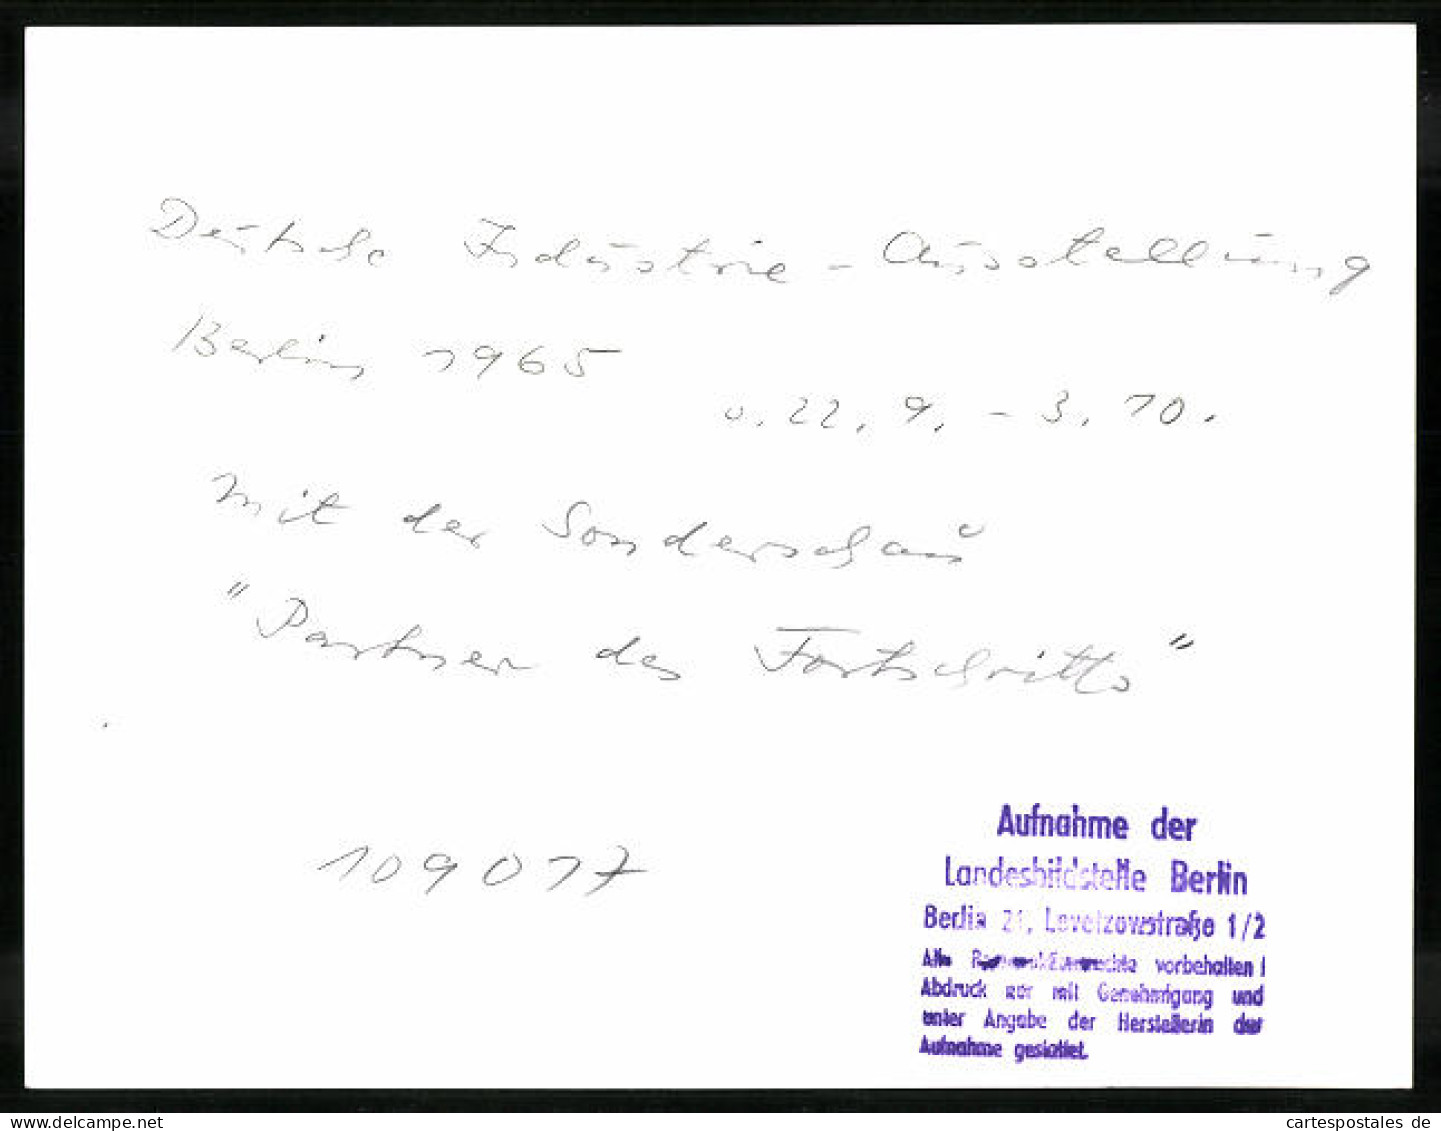 Deutsche Industrie - Ausstellung
Berlin 1965
v. 22. 9. - 3. 10.
mit der Sonderschau
"Partner des Fortschritts"
109017
Aufnahme der
Landesbildstelle Berlin
Berlin 21, Levetzowstraße 1/2
Alle Reproduktionsrechte vorbehalten!
Abdruck nur mit Genehmigung und
unter Angabe der Herstellerin der
Aufnahme gestattet.
delcampe.net
cartespostales de